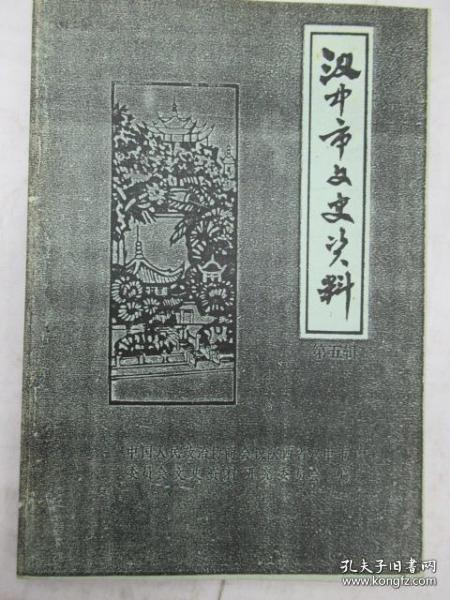 汉中市文史资料
第五辑
中国人民政治协商会议陕西省汉中市
委员会文史资料研究委员会 编
孔夫子旧书网
www.kongfz.com